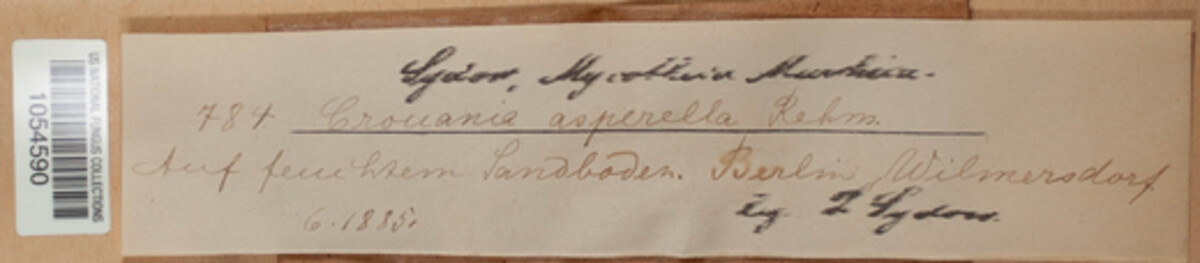 Sydow, Mycotheca Marchica.
784. Crouania asperella Rehm.
Auf feuchtem Sandboden. Berlin, Wilmersdorf
6.1885.
leg. P Sydow.
US NATIONAL FUNGUS COLLECTIONS
1054590